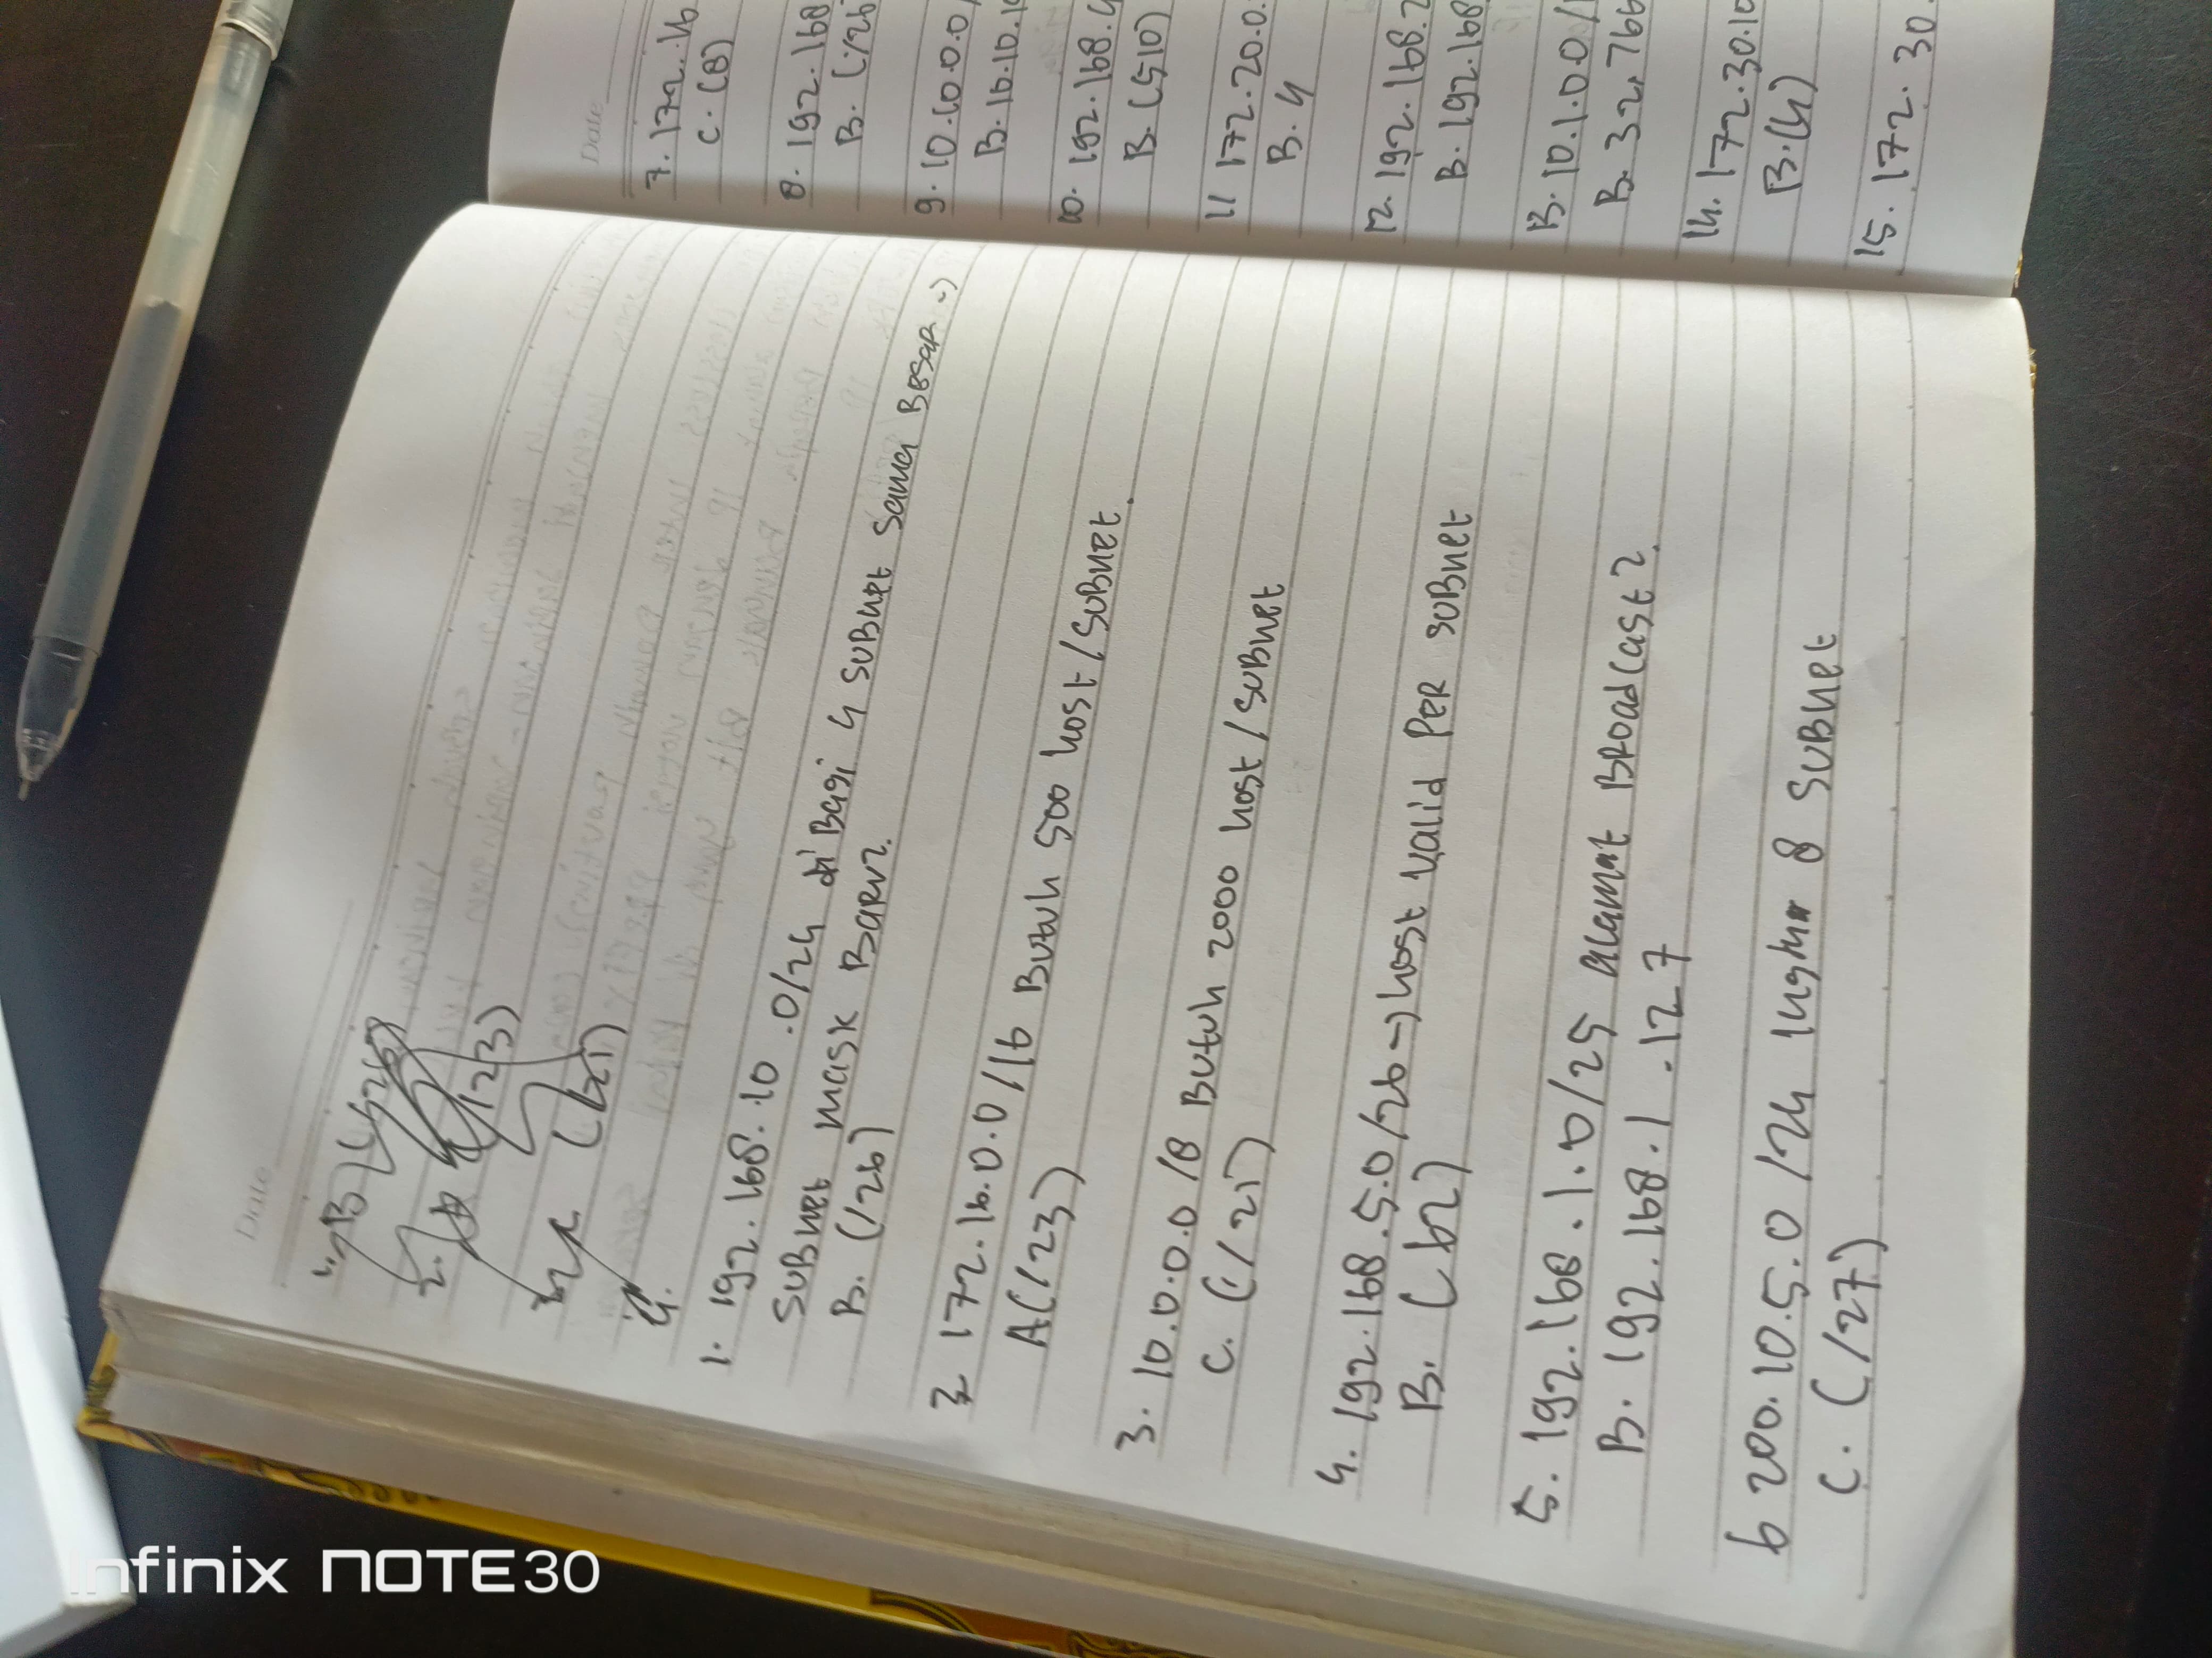 Date
(/23)
(/21)
4.
1. 192.168.10.0/24 di Bagi 4 SUBNet Sama Besar →
SUBNet mask Baru?
B. (/26)
2 172.16.0.0/16 Butuh 500 host/SUBNet.
A (/23)
3. 10.0.0.0/8 Butuh 2000 host/SUBNet
C. (/21)
4. 192.168.5.0/26 → host Valid Per SUBNet
B. (62)
5. 192.168.1.0/25 alamat Broadcast?
B. 192.168.1.127
6 200.10.5.0/24 Ingin 8 SUBNet
C. (/27)
Date
7. 172.16
C. (8)
8. 192.168
B. (/26
9. 10.10.0.0/
B. 10.10.1
10. 192.168.4
B. (510)
11 172.20.0.
B. 4
12. 192.168.2
B. 192.168
13. 10.1.0.0/1
B. 32,766
14. 172.30.10
B. (4)
15. 172.30.
Infinix NOTE 30